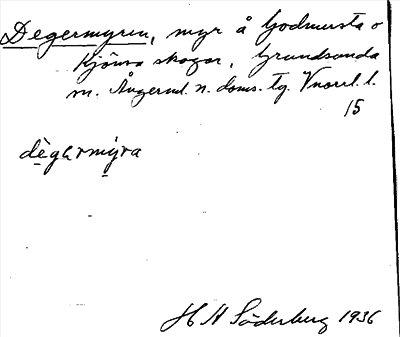 Degermyren, myr å Godmersta o
Kjörva skogar, Grundsunda
sn. Ångerml. n. doms. tg. Vnorrl. l.
15
dègarmýra
H A Söderberg 1936